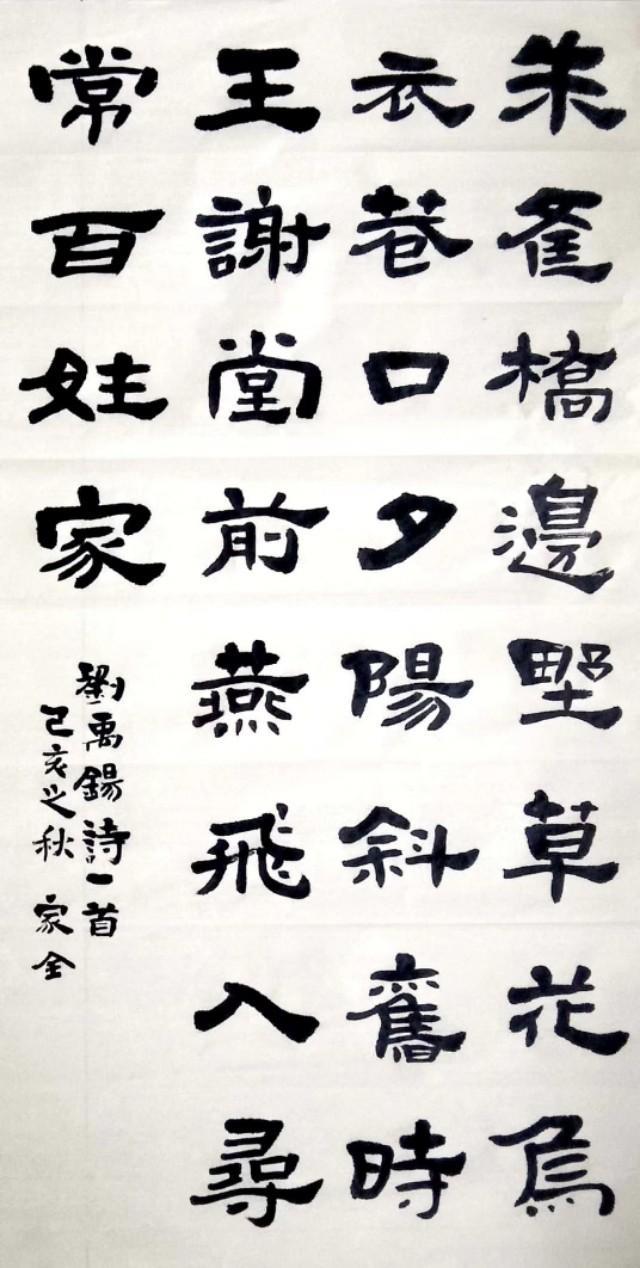 朱雀橋邊野草花烏
衣巷口夕陽斜舊時
王謝堂前燕飛入尋
常百姓家
劉禹錫詩一首
己亥之秋 家全